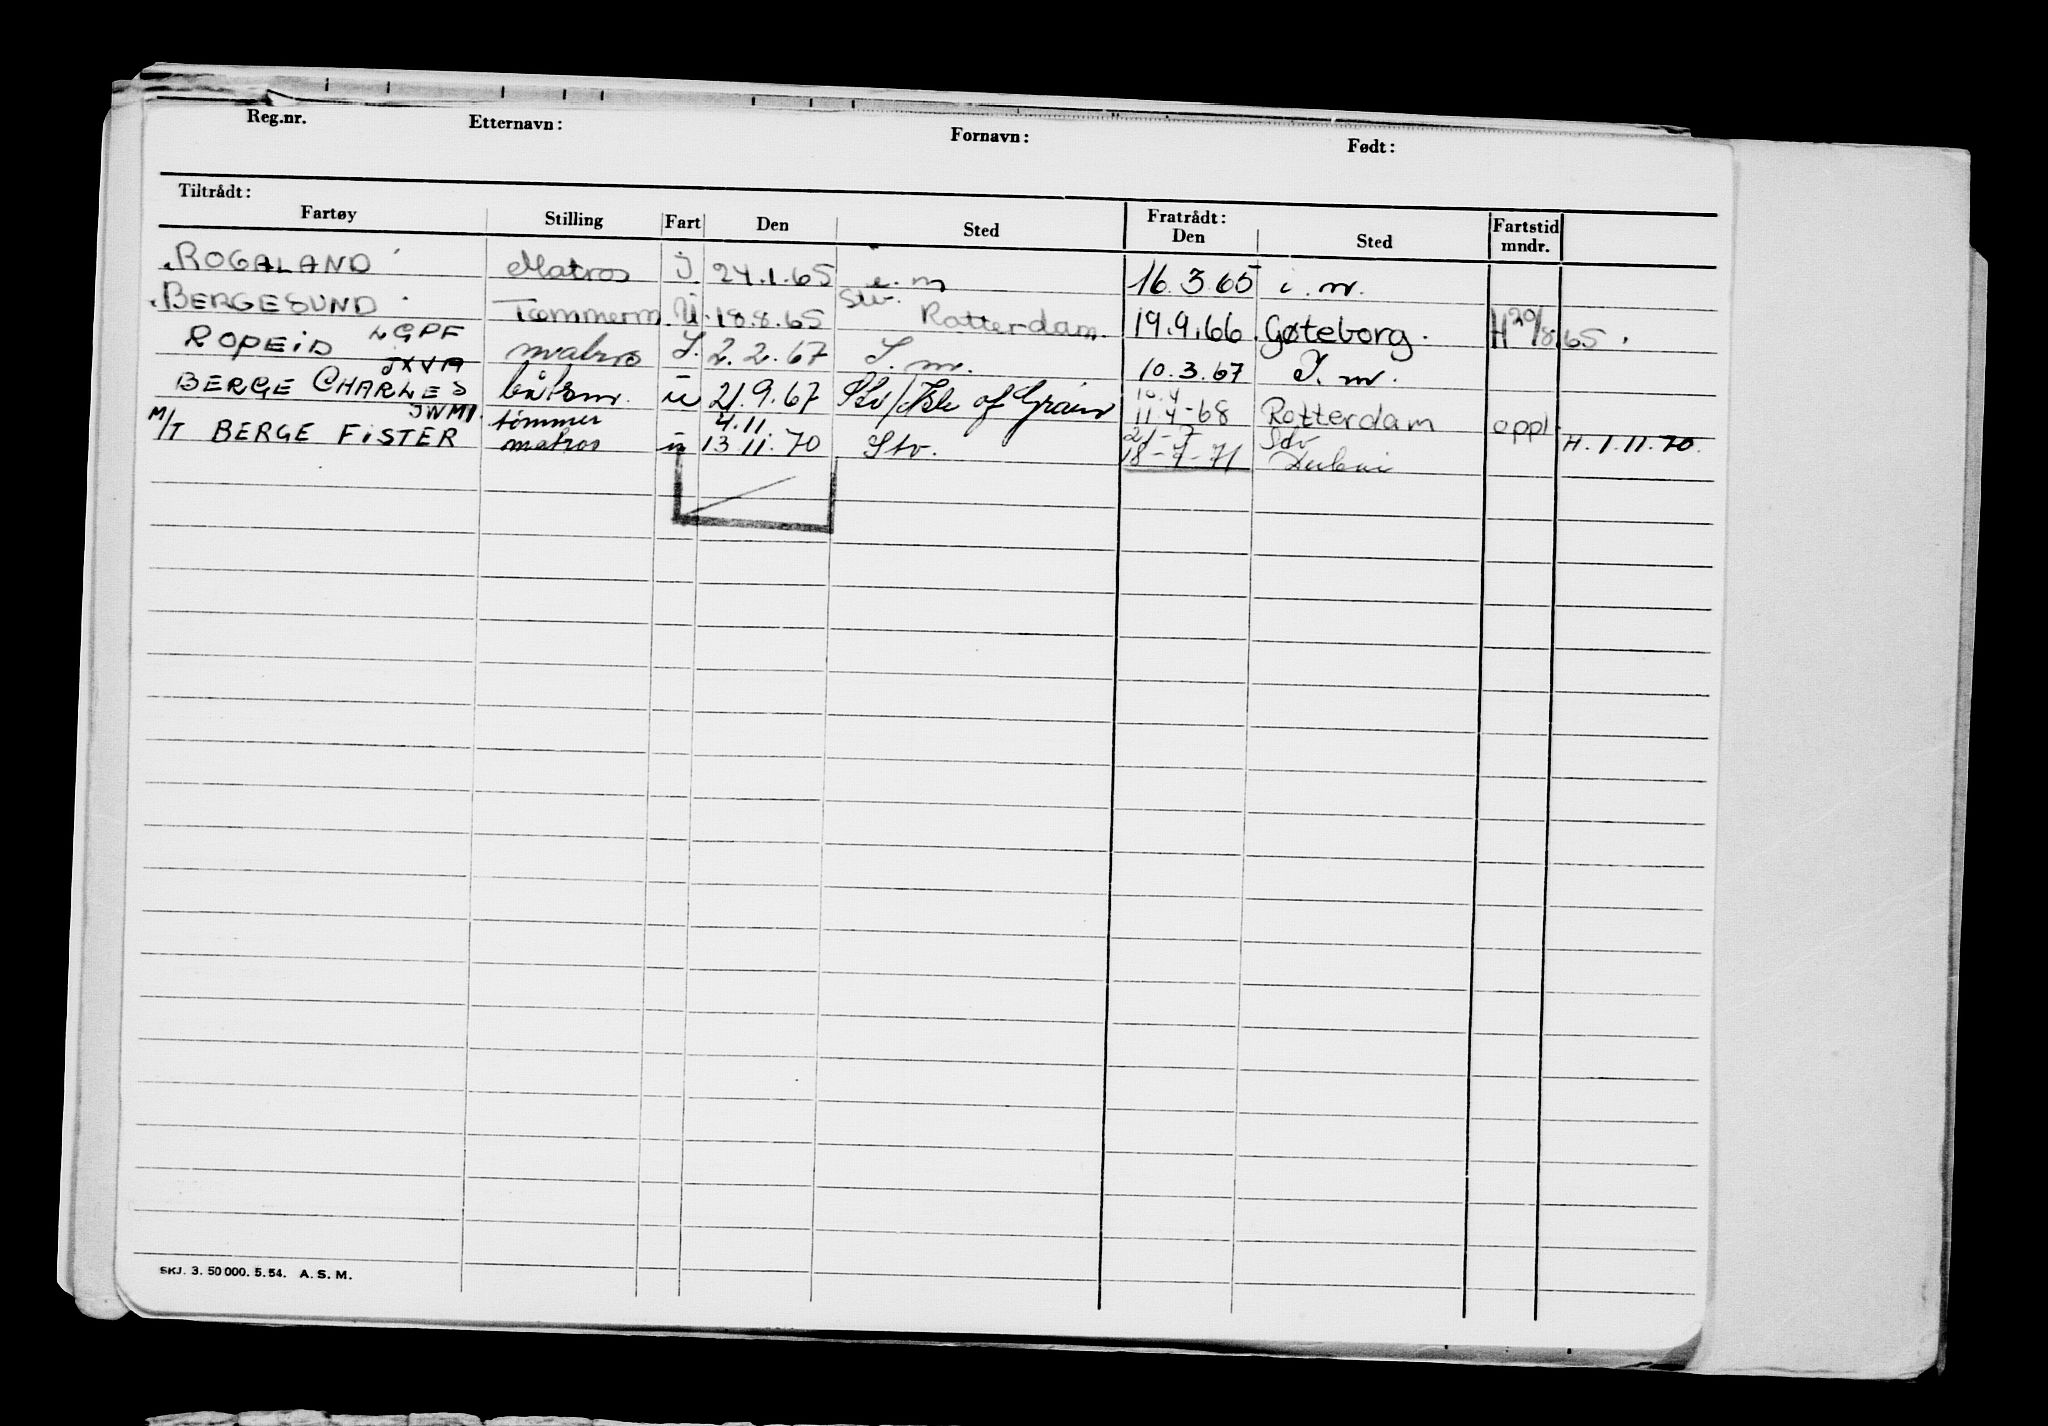 Reg.nr. Etternavn: Fornavn: Født:
Tiltrådt: Fratrådt:
Fartøy Stilling Fart Den Sted Den Sted Fartstid mndr.
ROGALAND Matros I. 24.1.65 e.m 16.3.65 i.m.
BERGESUND Tømmerm. U. 18.8.65 Stv. Rotterdam. 19.9.66. Gøteborg. H 20/8 65.
ROPEID LGPF matros I. 2.2.67 I.m. 10.3.67 I.m.
JXVA
BERGE CHARLES båtsm. u 21.9.67 Stv/Isle of Grain 10.4 11.4-68 Rotterdam oppl.
JWMI. tømmer 4.11 21-7 Stv
M/T BERGE FISTER matros u 13.11.70 Stv. 18-7-71 Dubai H. 1.11.70.
SKJ. 3. 50 000. 5. 54. A. S. M.